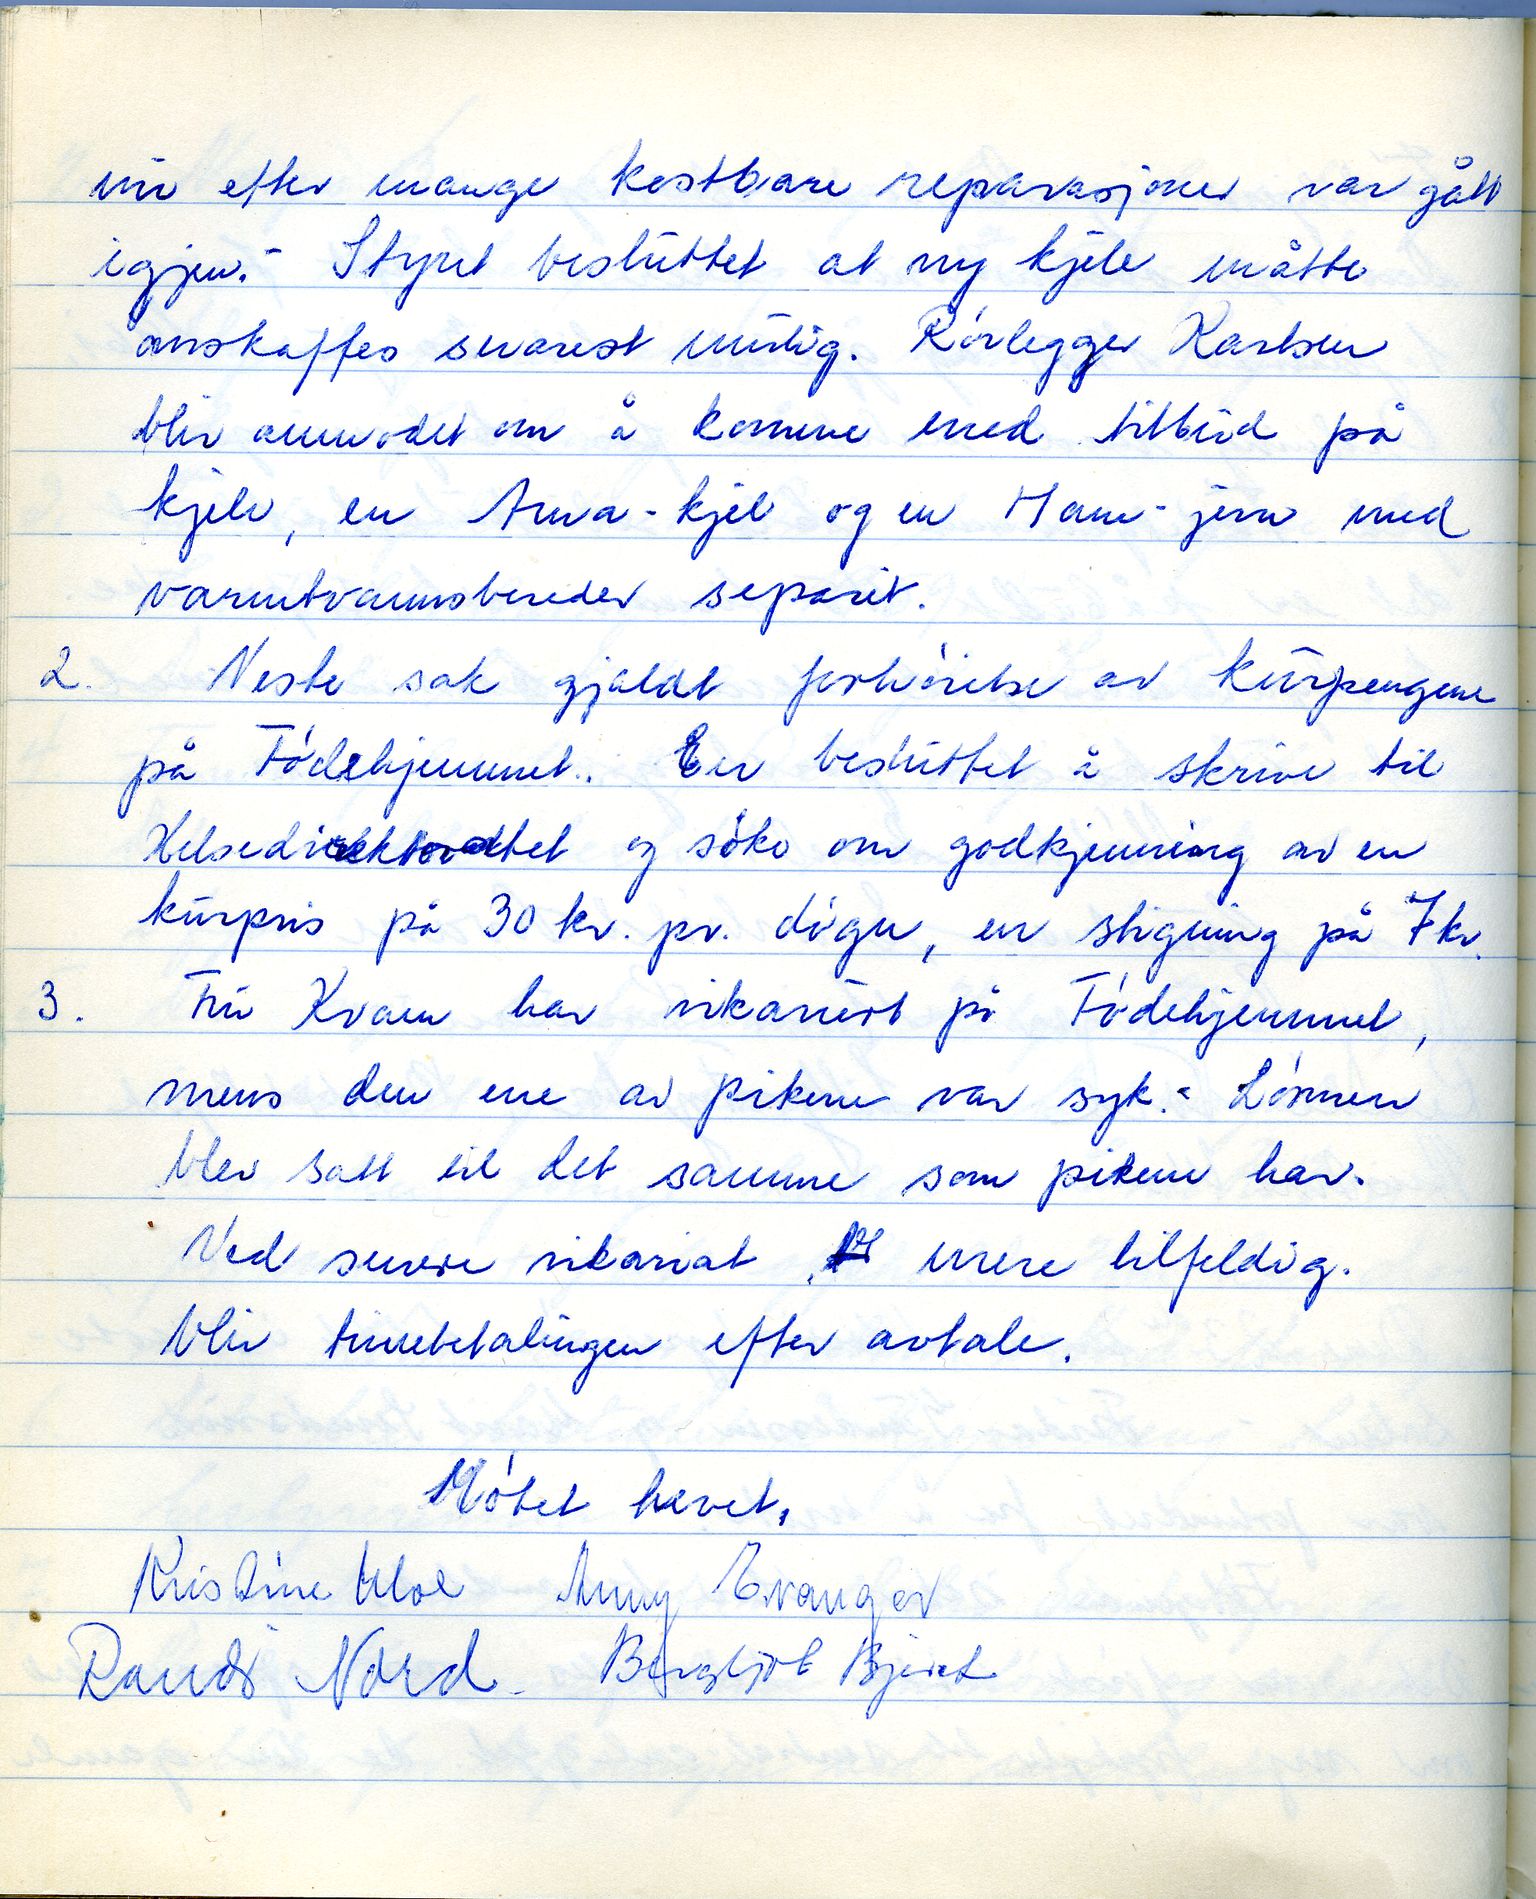 nu efter mange kostbare reparasjoner var gått
igjen. - Styret besluttet at ny kjele måtte
anskaffes snarest mulig. Rørlegger Karlsen
blir anmodet om å komme med tilbud på
kjele, en Arna-kjel og en Ham-jern med
varmtvannsbereder separat.
2. Neste sak gjaldt forhøielse av kurpengene
på Fødehjemmet. Er besluttet å skrive til
Helsedirektoratet og søke om godkjenning av en
kurpris på 30 kr. pr. døgn, en stigning på 7 kr.
3. Fru Kvam har vikariert på Fødehjemmet,
mens den ene av pikene var syk. - Lønnen
blev satt til det samme som pikene har.
Ved senere vikariat, mere tilfeldig.
blir timebetalingen efter avtale.
Møtet hevet.
Kristine Moe Anny Evanger
Randi Nord. Bergljot Bjeret